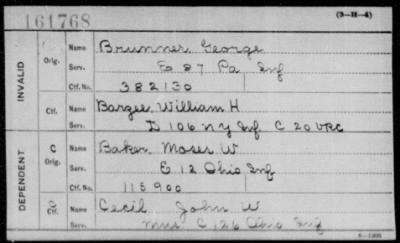 161768
(3-H-4)
INVALID
Orig. Name Brunner, George
Serv. E 87 Pa Inf
Ctf. No. 382130
Ctf. Name Barzee, William H
Serv. D 106 NY Inf C 20 VRC
DEPENDENT
C Orig. Name Baker, Moses W
Serv. E 12 Ohio Inf
Ctf. No. 115900
Ctf. Name Cecil, John W
Serv. C 126 Ohio Inf